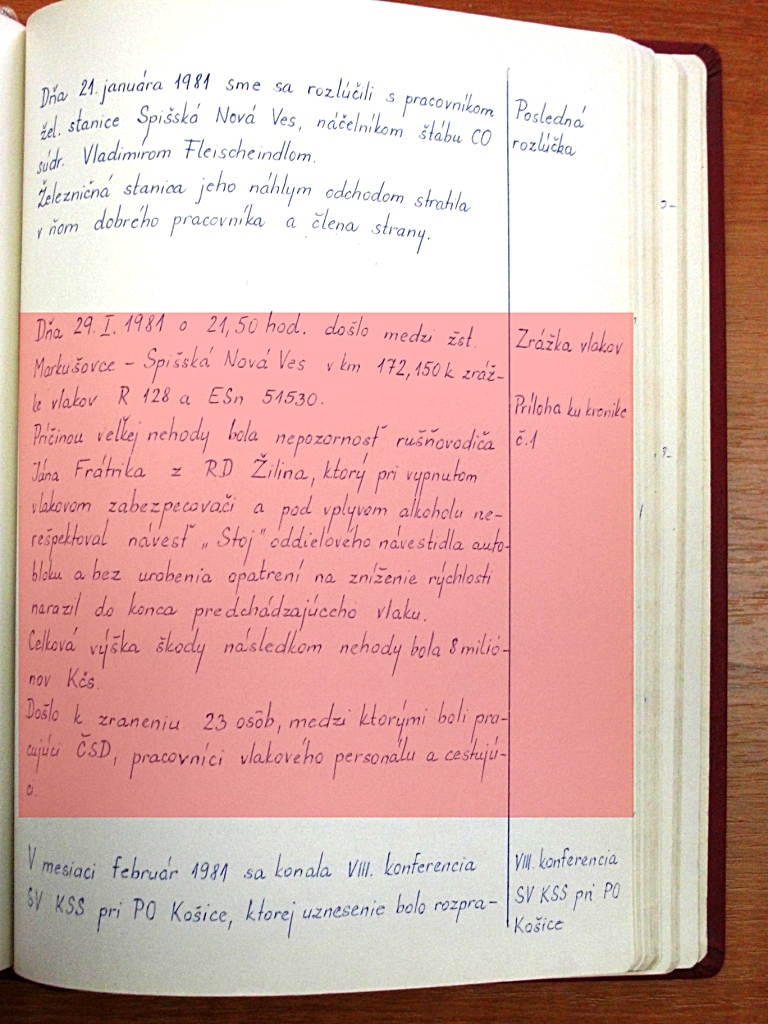 Dňa 21. januára 1981 sme sa rozlúčili s pracovníkom
žel. stanice Spišská Nová Ves, náčelníkom štábu CO
súdr. Vladimírom Fleischeindlom.
Železničná stanica jeho náhlym odchodom stratila
v ňom dobrého pracovníka a člena strany.
Posledná
rozlúčka
Dňa 29. I. 1981 o 21,50 hod. došlo medzi žst.
Markušovce - Spišská Nová Ves v km 172,150 k zráž-
ke vlakov R 128 a ESn 51530.
Príčinou veľkej nehody bola nepozornosť rušňovodiča
Jána Frátrika z RD Žilina, ktorý pri vypnutom
vlakovom zabezpecovači a pod vplyvom alkoholu ne-
rešpektoval návesť „Stoj" oddielového návestidla auto-
bloku a bez urobenia opatrení na zníženie rýchlosti
narazil do konca predchádzajúceho vlaku.
Celková výška škody následkom nehody bola 8 milió-
nov Kčs.
Došlo k zraneniu 23 osôb, medzi ktorými boli pra-
cujúci ČSD, pracovníci vlakového personálu a cestujú-
ci.
Zrážka vlakov
Príloha ku kronike
č.1
V mesiaci február 1981 sa konala VIII. konferencia
SV KSS pri PO Košice, ktorej uznesenie bolo rozpra-
VIII. konferencia
SV KSS pri PO
Košice